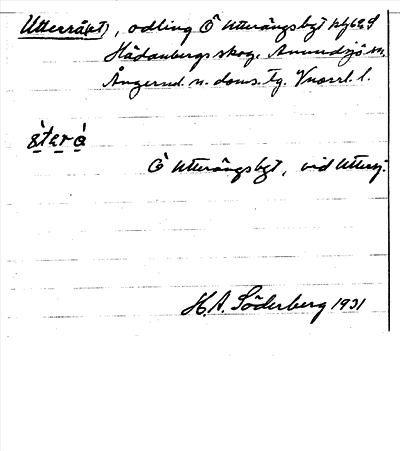 Utterråkt), odling Ö Utterängsbgt
Hädanbergs skog, Anundsjö sn,
Ångermd. n. doms. tg. Vnorrl. l.
Ö Utterängsbgt, vid Uttersj.
H. A. Söderberg 1931